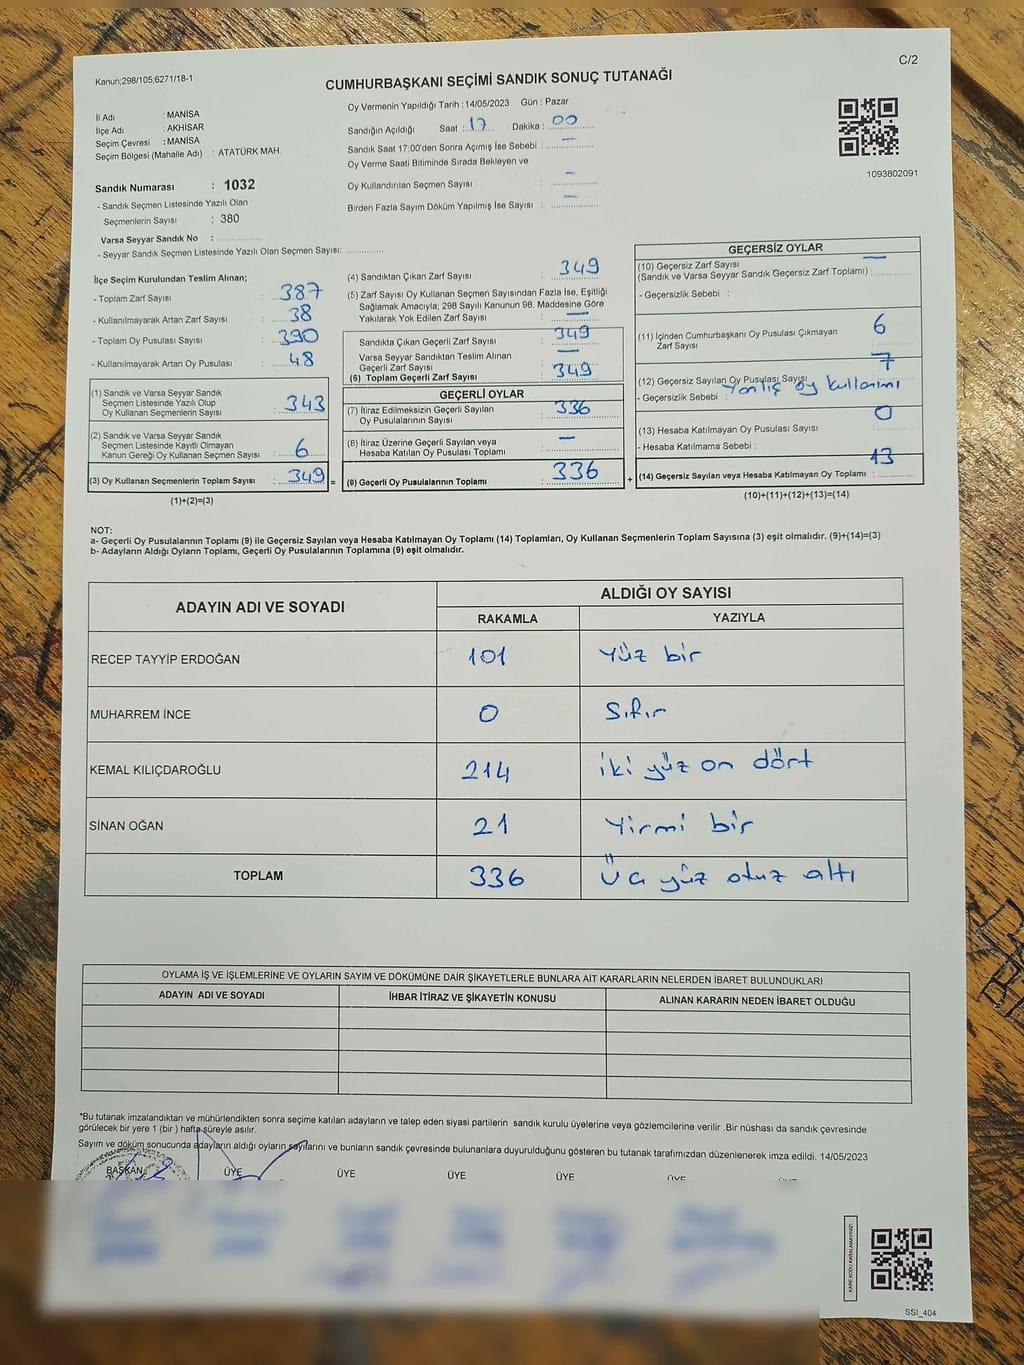 Kanun;298/105;6271/18-1
C/2
CUMHURBAŞKANI SEÇİMİ SANDIK SONUÇ TUTANAĞI
İl Adı : MANİSA
İlçe Adı : AKHİSAR
Seçim Çevresi : MANİSA
Seçim Bölgesi (Mahalle Adı) : ATATÜRK MAH.
Sandık Numarası : 1032
- Sandık Seçmen Listesinde Yazılı Olan
Seçmenlerin Sayısı : 380
Varsa Seyyar Sandık No :
- Seyyar Sandık Seçmen Listesinde Yazılı Olan Seçmen Sayısı:
Oy Vermenin Yapıldığı Tarih : 14/05/2023 Gün : Pazar
Sandığın Açıldığı Saat : 17 Dakika : 00
Sandık Saat 17:00'den Sonra Açımış İse Sebebi : —
Oy Verme Saati Bitiminde Sırada Bekleyen ve
Oy Kullandırılan Seçmen Sayısı : —
Birden Fazla Sayım Döküm Yapılmış İse Sayısı : —
1093802091
İlçe Seçim Kurulundan Teslim Alınan;
- Toplam Zarf Sayısı : 387
- Kullanılmayarak Artan Zarf Sayısı : 38
- Toplam Oy Pusulası Sayısı : 390
- Kullanılmayarak Artan Oy Pusulası : 48
(1) Sandık ve Varsa Seyyar Sandık
Seçmen Listesinde Yazılı Olup
Oy Kullanan Seçmenlerin Sayısı : 343
(2) Sandık ve Varsa Seyyar Sandık
Seçmen Listesinde Kayıtlı Olmayan
Kanun Gereği Oy Kullanan Seçmen Sayısı : 6
(3) Oy Kullanan Seçmenlerin Toplam Sayısı : 349 =
(1)+(2)=(3)
(4) Sandıktan Çıkan Zarf Sayısı : 349
(5) Zarf Sayısı Oy Kullanan Seçmen Sayısından Fazla İse, Eşitliği
Sağlamak Amacıyla; 298 Sayılı Kanunun 98. Maddesine Göre
Yakılarak Yok Edilen Zarf Sayısı : —
Sandıkta Çıkan Geçerli Zarf Sayısı : 349
Varsa Seyyar Sandıktan Teslim Alınan
Geçerli Zarf Sayısı : —
(6) Toplam Geçerli Zarf Sayısı : 349
GEÇERLİ OYLAR
(7) İtiraz Edilmeksizin Geçerli Sayılan
Oy Pusulalarının Sayısı : 336
(8) İtiraz Üzerine Geçerli Sayılan veya
Hesaba Katılan Oy Pusulası Toplamı : —
(9) Geçerli Oy Pusulalarının Toplamı : 336 +
GEÇERSİZ OYLAR
(10) Geçersiz Zarf Sayısı —
(Sandık ve Varsa Seyyar Sandık Geçersiz Zarf Toplamı) :
- Geçersizlik Sebebi :
(11) İçinden Cumhurbaşkanı Oy Pusulası Çıkmayan
Zarf Sayısı : 6
(12) Geçersiz Sayılan Oy Pusulası Sayısı : 7
- Geçersizlik Sebebi : Yanlış oy kullanımı
(13) Hesaba Katılmayan Oy Pusulası Sayısı : 0
- Hesaba Katılmama Sebebi :
(14) Geçersiz Sayılan veya Hesaba Katılmayan Oy Toplamı : 13
(10)+(11)+(12)+(13)=(14)
NOT:
a- Geçerli Oy Pusulalarının Toplamı (9) ile Geçersiz Sayılan veya Hesaba Katılmayan Oy Toplamı (14) Toplamları, Oy Kullanan Seçmenlerin Toplam Sayısına (3) eşit olmalıdır. (9)+(14)=(3)
b- Adayların Aldığı Oyların Toplamı, Geçerli Oy Pusulalarının Toplamına (9) eşit olmalıdır.
ADAYIN ADI VE SOYADI ALDIĞI OY SAYISI
RAKAMLA YAZIYLA
RECEP TAYYİP ERDOĞAN 101 Yüz bir
MUHARREM İNCE 0 Sıfır
KEMAL KILIÇDAROĞLU 214 iki yüz on dört
SİNAN OĞAN 21 Yirmi bir
TOPLAM 336 Üç yüz otuz altı
OYLAMA İŞ VE İŞLEMLERİNE VE OYLARIN SAYIM VE DÖKÜMÜNE DAİR ŞİKAYETLERLE BUNLARA AİT KARARLARIN NELERDEN İBARET BULUNDUKLARI
ADAYIN ADI VE SOYADI İHBAR İTİRAZ VE ŞİKAYETİN KONUSU ALINAN KARARIN NEDEN İBARET OLDUĞU
*Bu tutanak imzalandıktan ve mühürlendikten sonra seçime katılan adayların ve talep eden siyasi partilerin sandık kurulu üyelerine veya gözlemcilerine verilir .Bir nüshası da sandık çevresinde
görülecek bir yere 1 (bir ) hafta süreyle asılır.
Sayım ve döküm sonucunda adayların aldığı oyların sayılarını ve bunların sandık çevresinde bulunanlara duyurulduğunu gösteren bu tutanak tarafımızdan düzenlenerek imza edildi. 14/05/2023
BAŞKAN ÜYE ÜYE ÜYE ÜYE ÜYE
KARE KODU KARALAMAYINIZ!
SSI_404